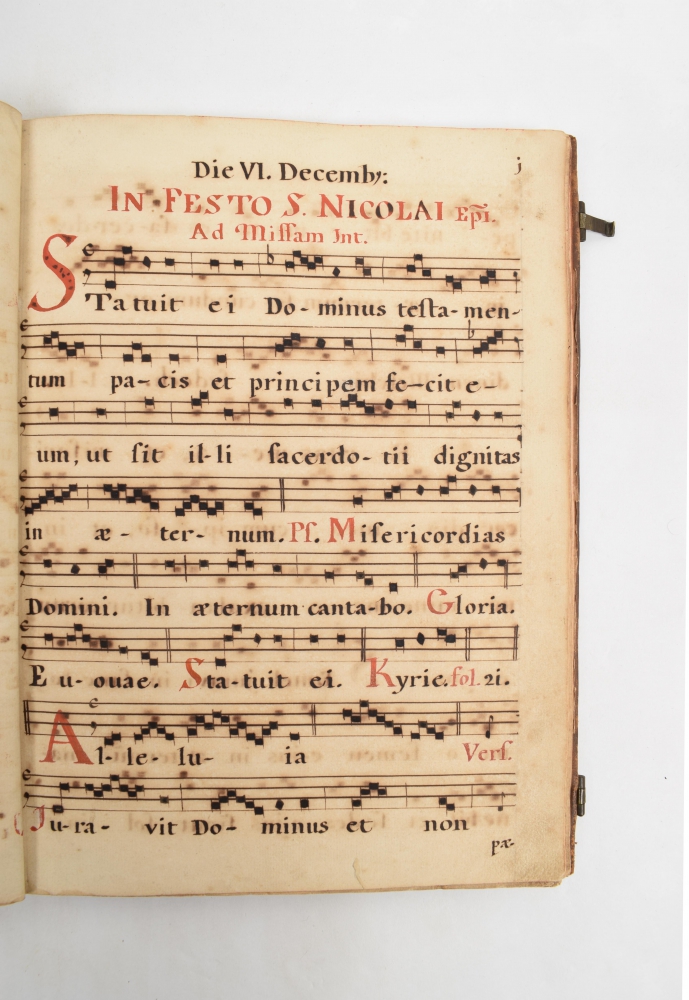 j
Die VI. Decemb:
IN FESTO S. NICOLAI Epi.
Ad Missam Int.
STatuit ei Do-minus testa-men-
tum pa-cis et principem fe-cit e-
um, ut sit il-li sacerdo-tii dignitas
in æ-ter-num. Ps. Misericordias
Domini. In æternum canta-bo. Gloria.
E u-ouae. Sta-tuit ei. Kyrie. fol. 21.
Al-le-lu-ia Vers.
Ju-ra-vit Do-minus et non
pæ-